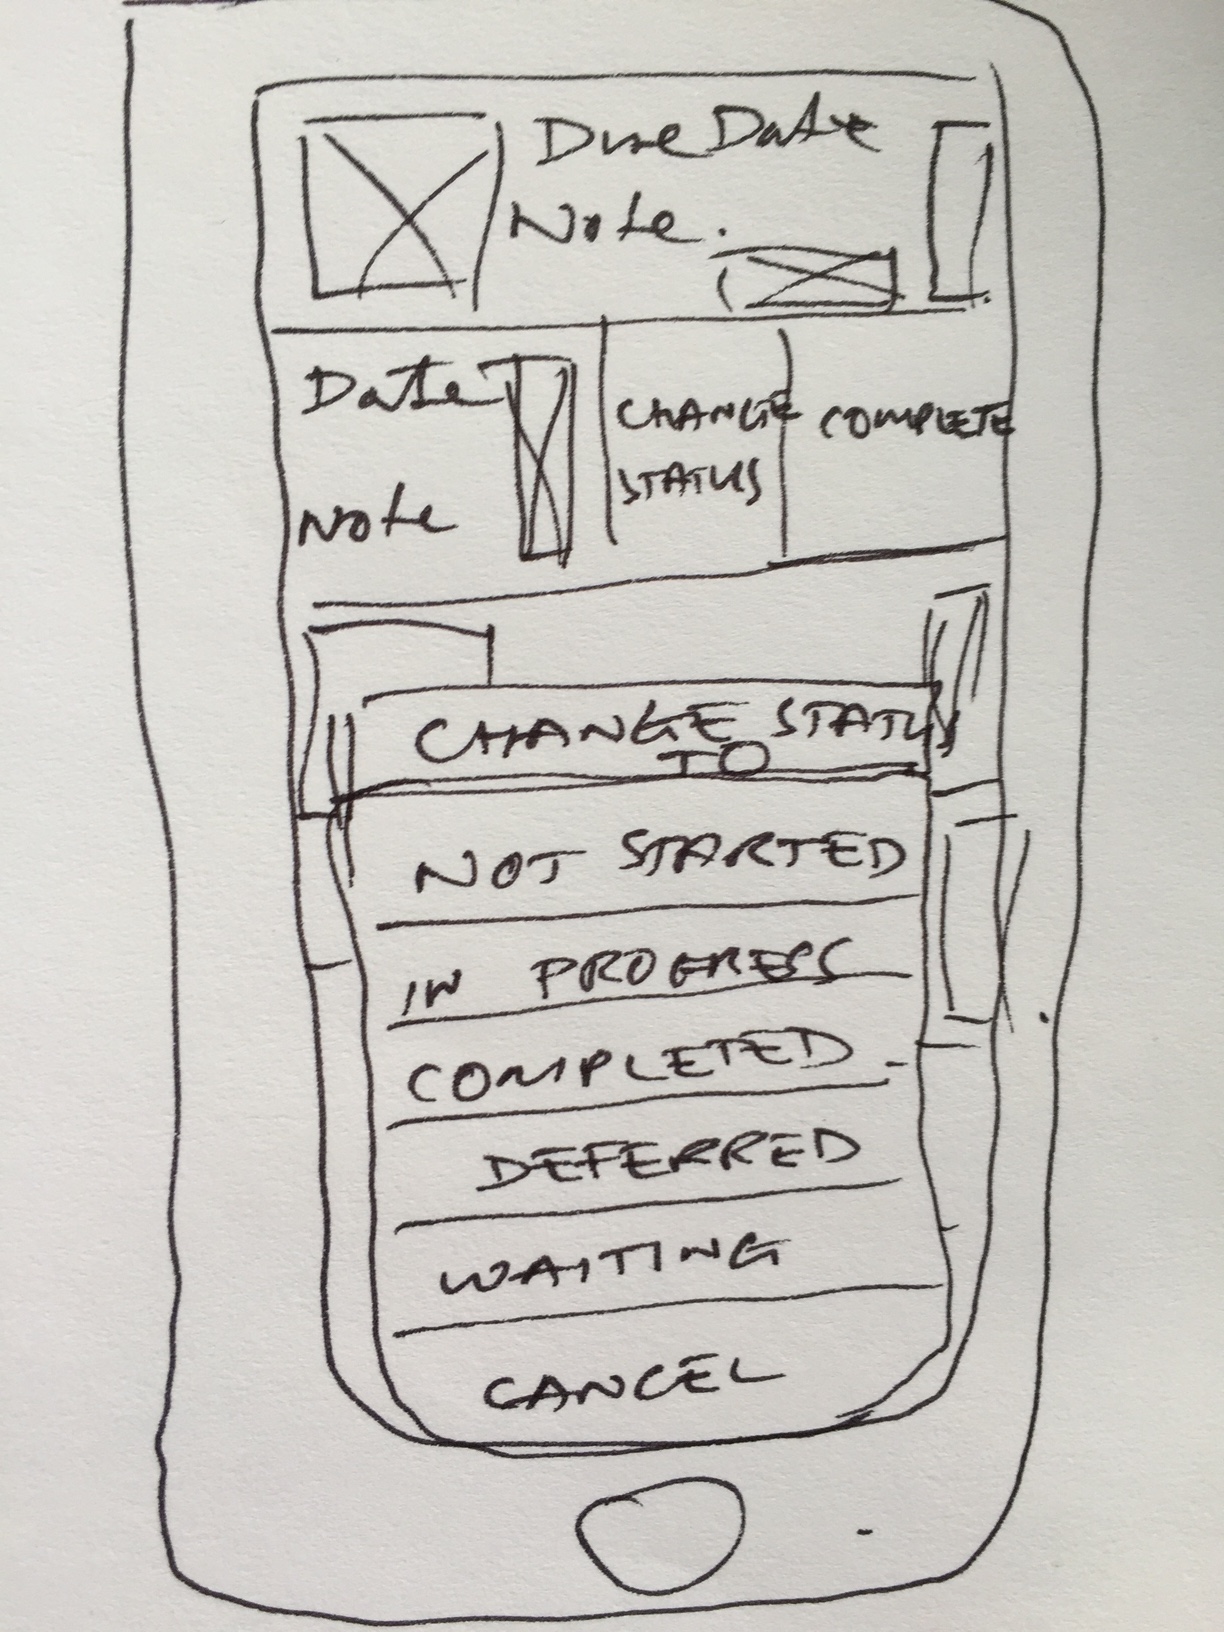 Due Date
Note.
Date
Note
CHANGE
STATUS
COMPLETE
CHANGE STATUS
TO
NOT STARTED
IN PROGRESS
COMPLETED
DEFERRED
WAITING
CANCEL